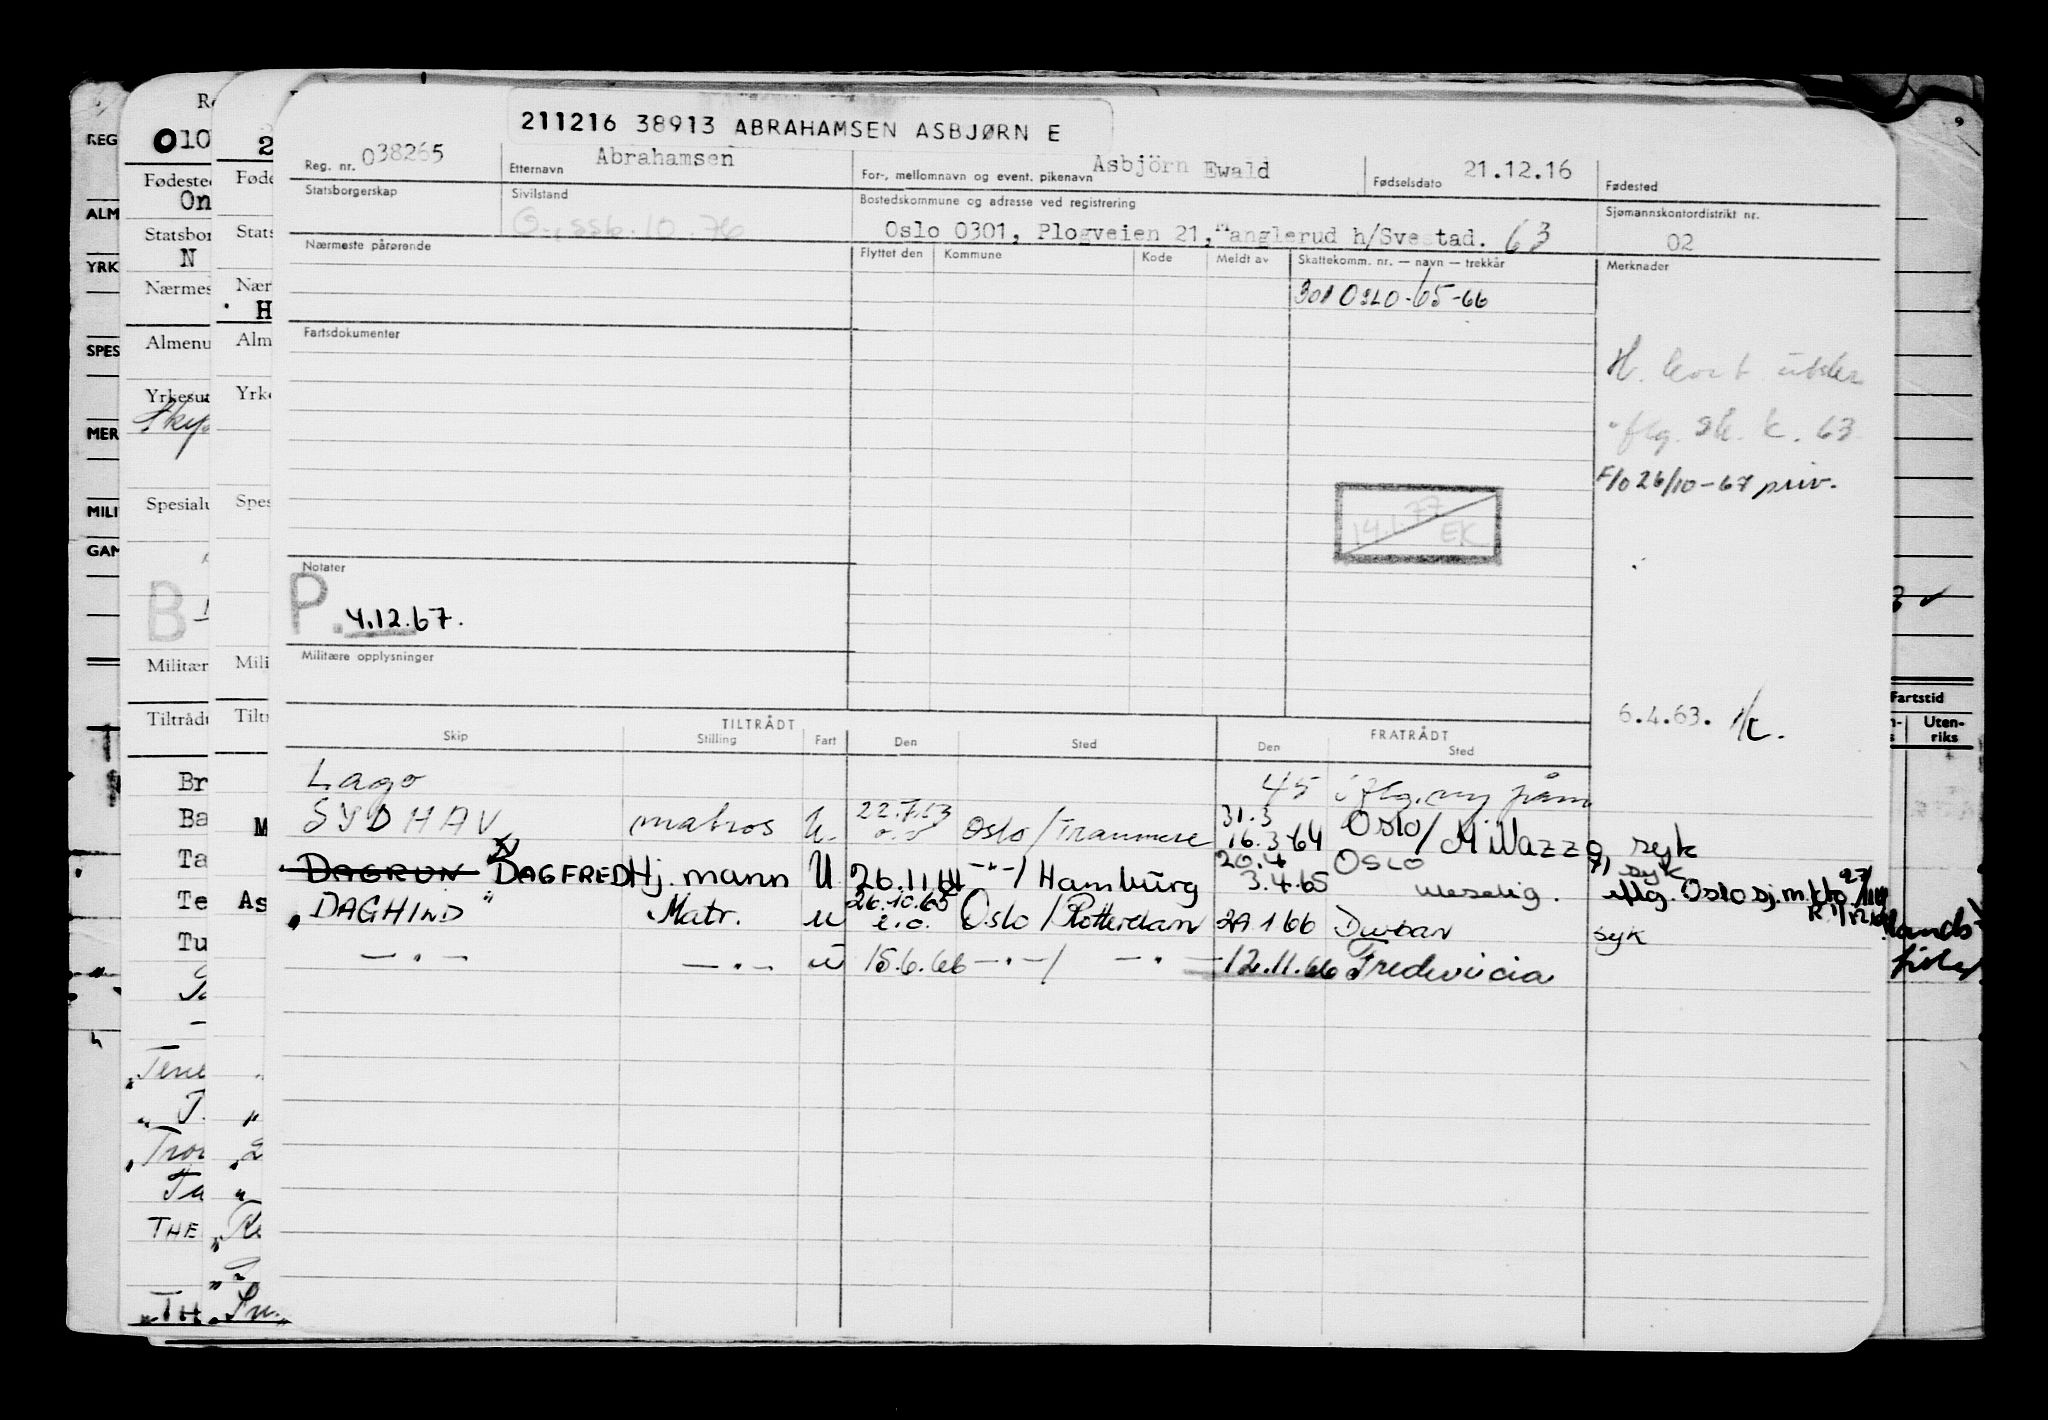 211216 38913 ABRAHAMSEN ASBJØRN E
Reg. nr. 038265 Etternavn Abrahamsen For-, mellomnavn og event. pikenavn Asbjörn Ewald Fødselsdato 21.12.16 Fødested
Statsborgerskap Sivilstand Bostedskommune og adresse ved registrering Sjømannskontordistrikt nr.
Oslo 0301, Plogveien 21, Manglerud h/Svestad. 63 02
Nærmeste pårørende Flyttet den Kommune Kode Meldt av Skattekomm. nr. — navn — trekkår Merknader
301 OSLO-65-66
Fartsdokumenter
H. kort utskr
iflg. sk. k. 63
F/o 26/10-67 priv.
14.1.77 EK
Notater
P. 4.12.67.
Militære opplysninger
6.4.63.
TILTRÅDT FRATRÅDT
Skip Stilling Fart Den Sted Den Sted
Lago 45 iflg.
SYDHAV matros U. 22.7.63 Oslo/Tranmere 31.3 16.3-64 Oslo/Milazzo, syk
DAGRUN DAGFRED Hj. mann U 26.11.64 -"-/Hamburg 20.4 3.4.65 Oslo syk
"DAGHILD" Matr. u 26.10.65 Oslo/Rotterdam 29.1 66 Durban syk
— " — — " — u 15.6.66 — " — / — " — 12.11.66 Fredericia
REG
ALM
YRK
SPES
MER
MILI
GAM
010
Fødested
On
Statsbor
N
Nærmes
Almenu
Yrkesut
Spesialu
B
Militær
Tiltrådt
Br
Ba
Ta
Te
Tu
THE
2
Føde
Stats
Nær
H
Alm
Yrke
Spes
Mili
Tiltr
M
As
Fartstid
Uten-
riks